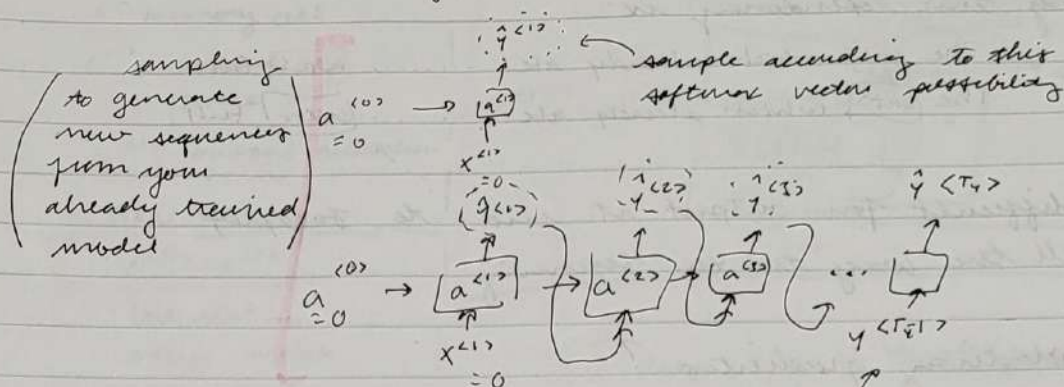 ŷ<1>
sampling
to generate
new sequences
from your
already trained
model
a<0> → a<1>
= 0
x<1>
= 0
← sample according to this
softmax vector possibility
ŷ<1> ŷ<2> ŷ<3> ŷ<Ty>
a<0> → a<1> → a<2> → a<3> ...
= 0
x<1>
= 0
y<Ty-1>